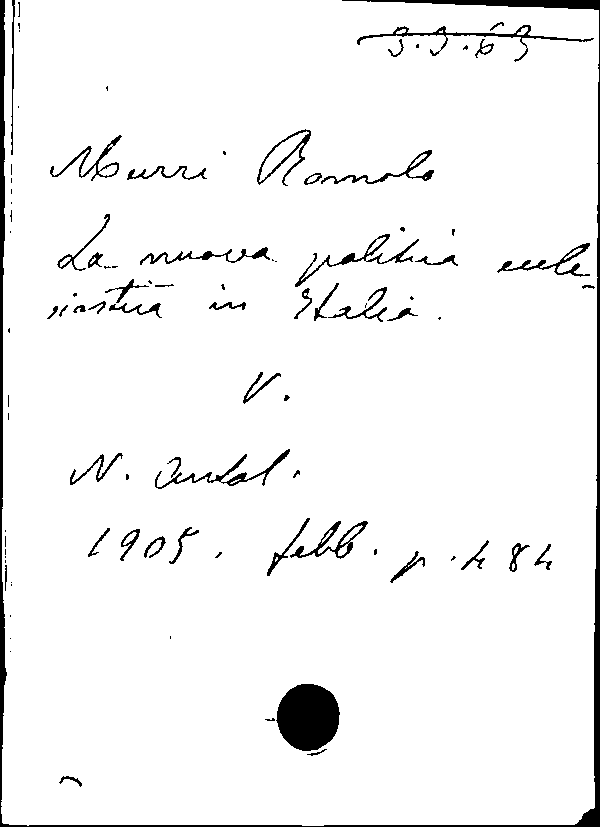 3.3.63
Murri Romolo
La nuova politica eccle-
siastica in Italia.
V.
N. Antol.
1905. febb. p. 484